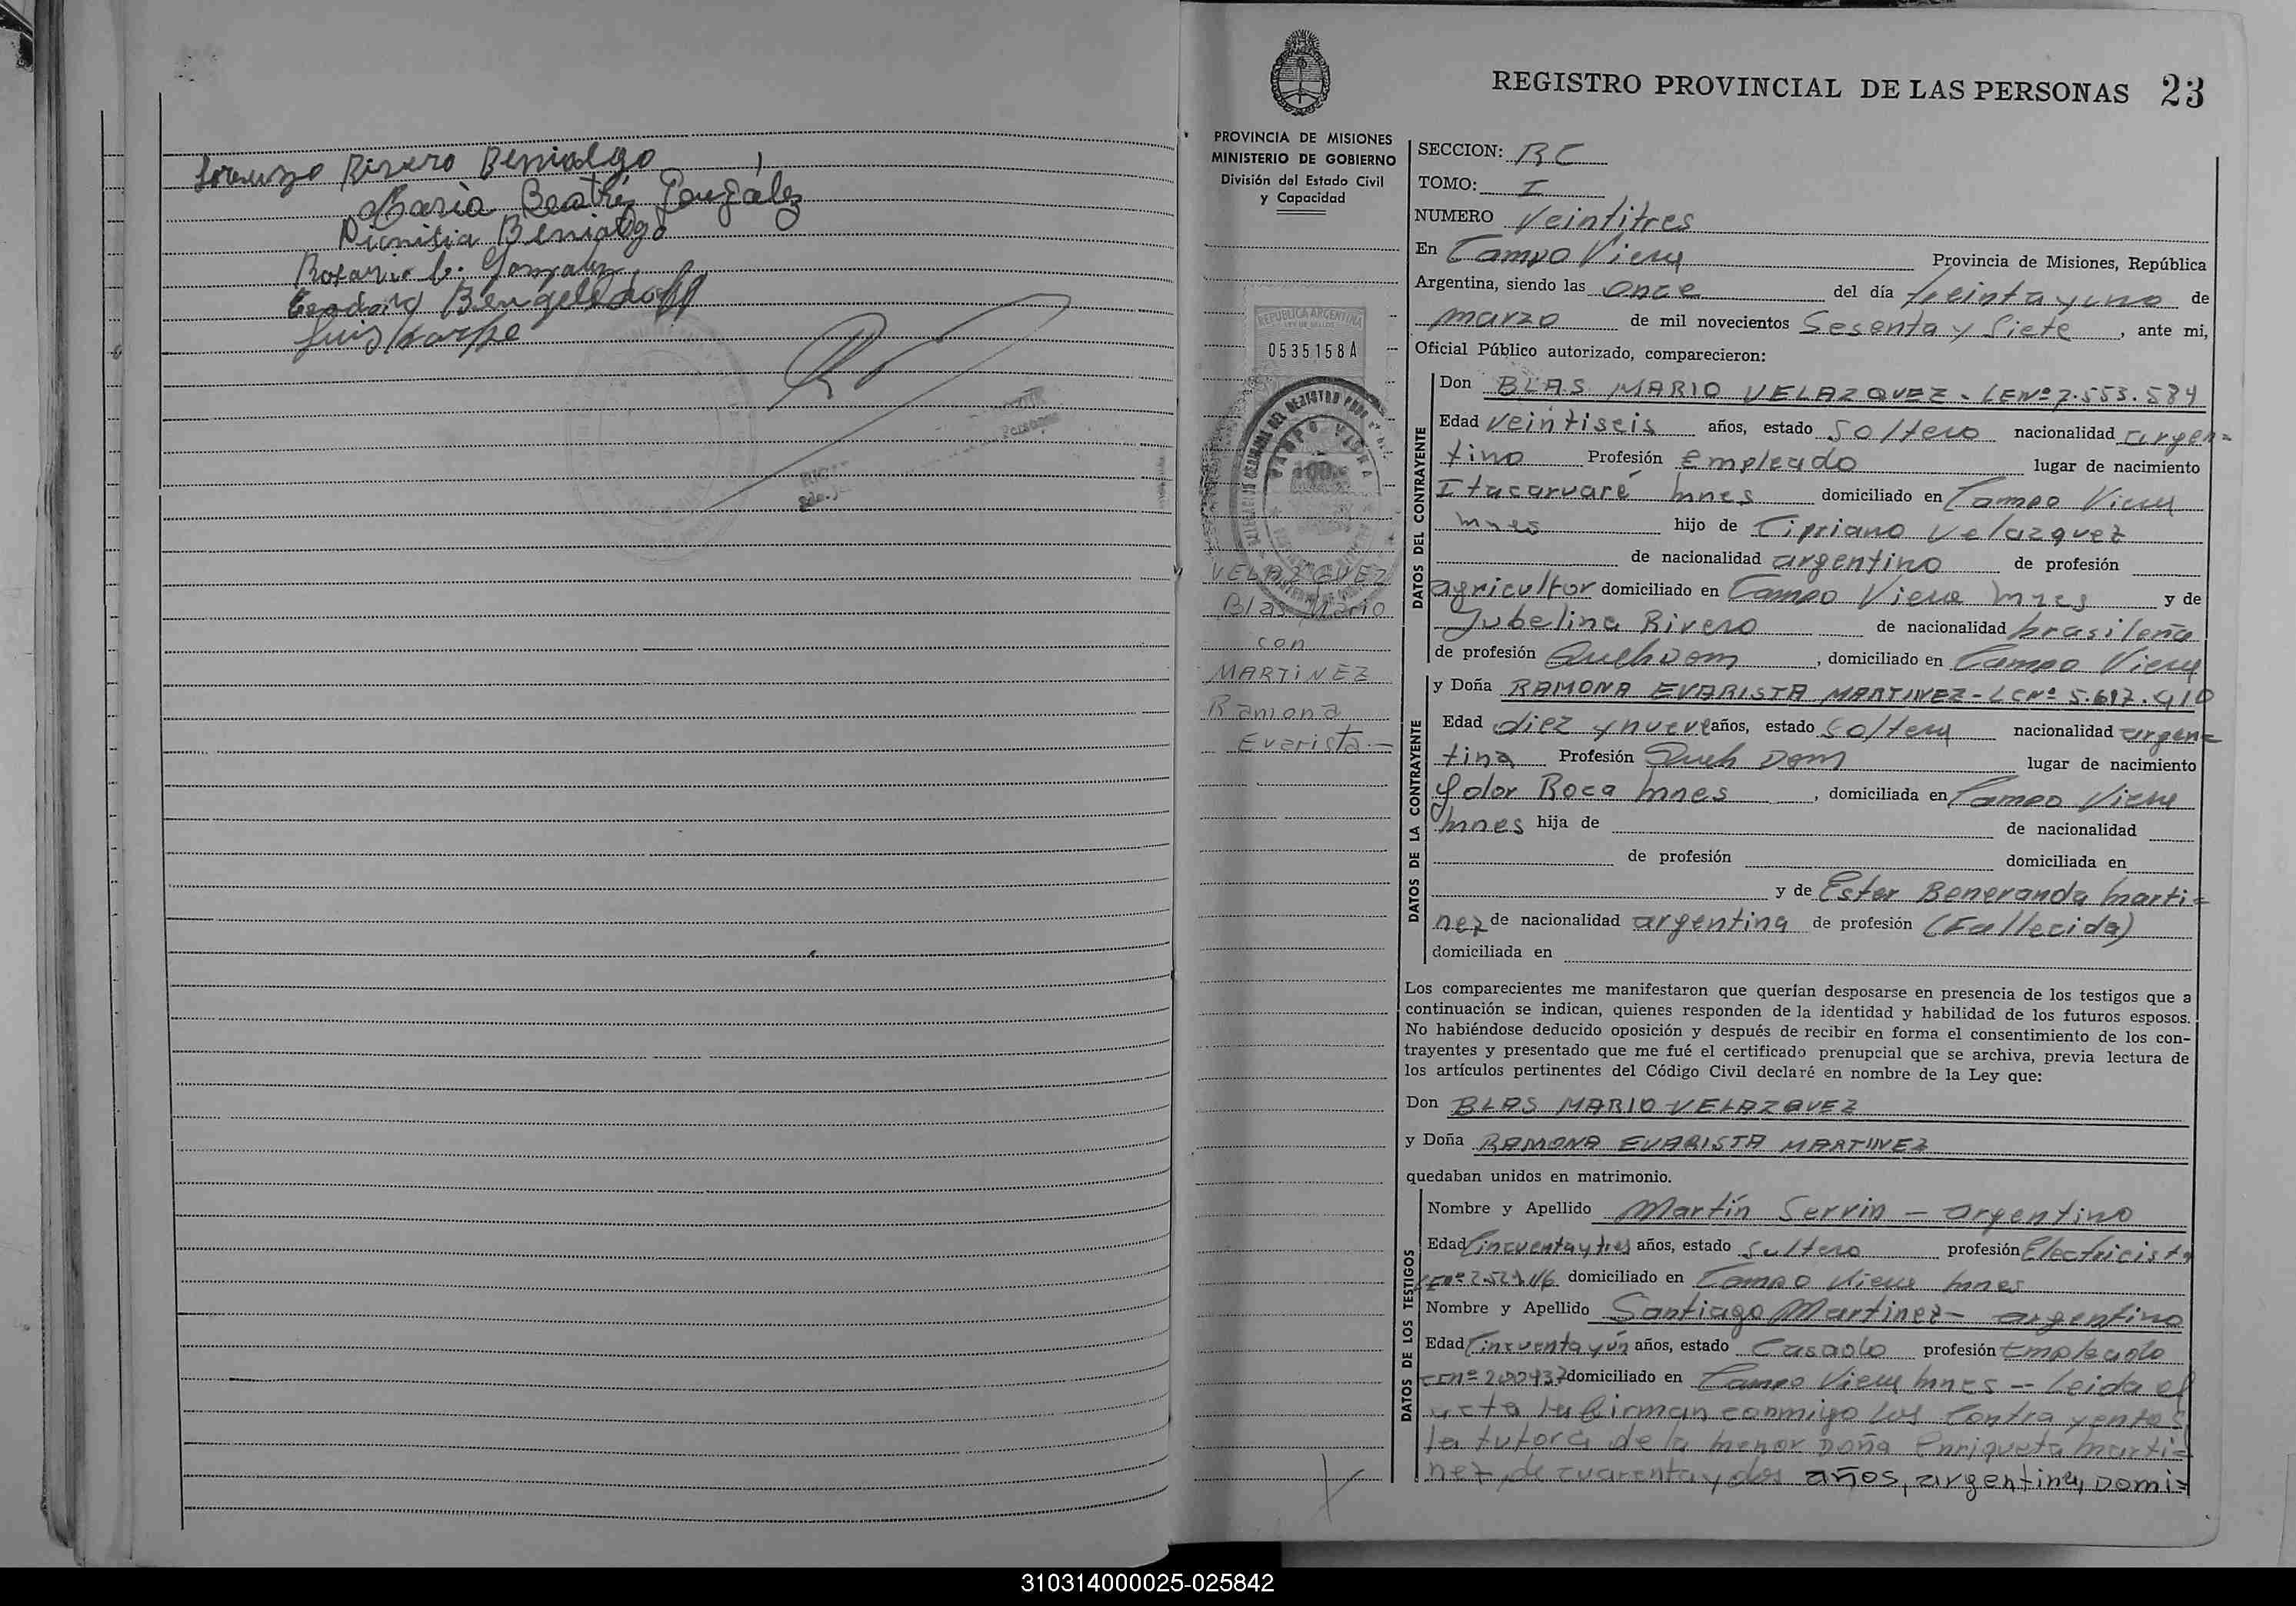 Lorenzo Rivero Benialgo
Maria Beatriz González
Dionisia Benialgo
Rosario C. Gonzalez
Teodoro Bengelsdorff
Luis Karpe
REGISTRO PROVINCIAL DE LAS PERSONAS 23
PROVINCIA DE MISIONES
MINISTERIO DE GOBIERNO
División del Estado Civil
y Capacidad
REPUBLICA ARGENTINA
0535158A
CAMPO VIERA
VELAZQUEZ
Blas Mario
con
MARTINEZ
Ramona
Evarista.—
SECCION: RC
TOMO: I
NUMERO Veintitres
En Campo Viera Provincia de Misiones, República
Argentina, siendo las once del día treinta y uno de
marzo de mil novecientos Sesenta y Siete, ante mi,
Oficial Público autorizado, comparecieron:
DATOS DEL CONTRAYENTE
Don BLAS MARIO VELAZQUEZ. LENº 7.553.584
Edad veintiseis años, estado soltero nacionalidad argen=
tino Profesión empleado lugar de nacimiento
Itacaruaré Mnes domiciliado en Campo Viera
Mnes hijo de Cipriano Velazquez
de nacionalidad argentino de profesión
agricultor domiciliado en Campo Viera Mnes y de
Jubelina Rivero de nacionalidad brasileña
de profesión Queh Dom, domiciliado en Campo Viera
DATOS DE LA CONTRAYENTE
y Doña RAMONA EVARISTA MARTINEZ - LCNº 5.697.910
Edad diez y nueve años, estado soltera nacionalidad argen=
tina Profesión Queh Dom lugar de nacimiento
Gdor Roca Mnes, domiciliada en Campo Viera
Mnes hija de de nacionalidad
de profesión domiciliada en
y de Ester Beneranda Marti=
nez de nacionalidad argentina de profesión (Fallecida)
domiciliada en
Los comparecientes me manifestaron que querían desposarse en presencia de los testigos que a
continuación se indican, quienes responden de la identidad y habilidad de los futuros esposos.
No habiéndose deducido oposición y después de recibir en forma el consentimiento de los con-
trayentes y presentado que me fué el certificado prenupcial que se archiva, previa lectura de
los artículos pertinentes del Código Civil declaré en nombre de la Ley que:
Don BLAS MARIO VELAZQUEZ
y Doña RAMONA EVARISTA MARTINEZ
quedaban unidos en matrimonio.
DATOS DE LOS TESTIGOS
Nombre y Apellido Martín Servin - argentino
Edad Cincuenta y tres años, estado Soltero profesión Electricista
domiciliado en Campo Viera Mnes
Nombre y Apellido Santiago Martinez - argentino
Edad Cincuenta y ún años, estado Casado profesión Empleado
domiciliado en Campo Viera Mnes - Leida el
acta, la firman conmigo los Contrayentes
la tutora de la menor Doña Enriqueta Marti=
nez, de cuarenta y dos años, argentina, Domi=
310314000025-025842